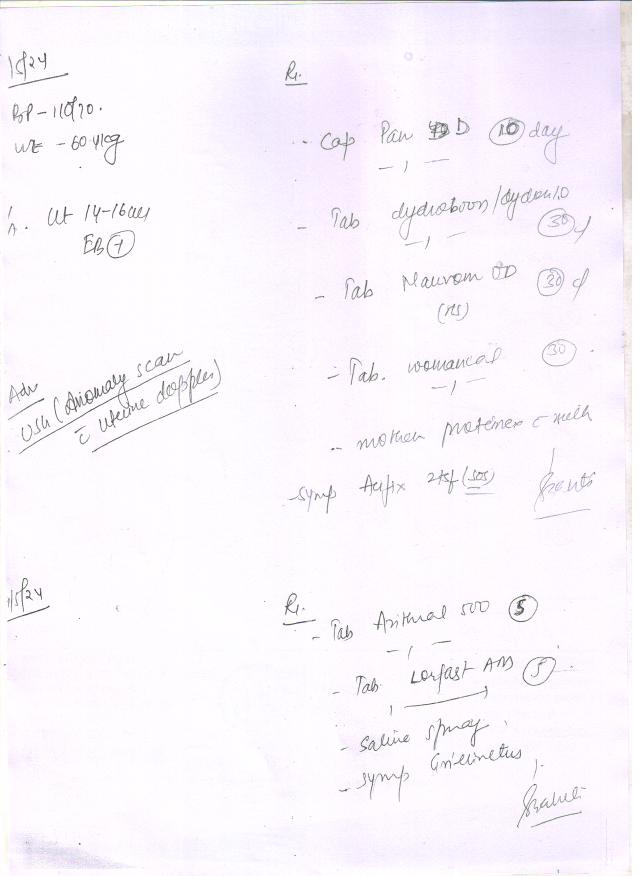 1/5/24
BP - 110/70.
Wt - 60.4kg
Ut 14-16
EB +
Adv
USG (Anomaly scan
c̄ uterine doppler)
Rx.
- Cap Pan D 10 day
- , -
- Tab dydroboon /
- , -
30 d
- Tab OD 30 d
(HS)
- Tab. womancal 30
- , -
- mother proteinex c̄ milk
- Symp 2tsf (SOS)
1/5/24
Rx.
- Tab Azithral 500 5
- , -
- Tab. Lorfast AM 5
- Saline spray,
- Symp Grilinctus,